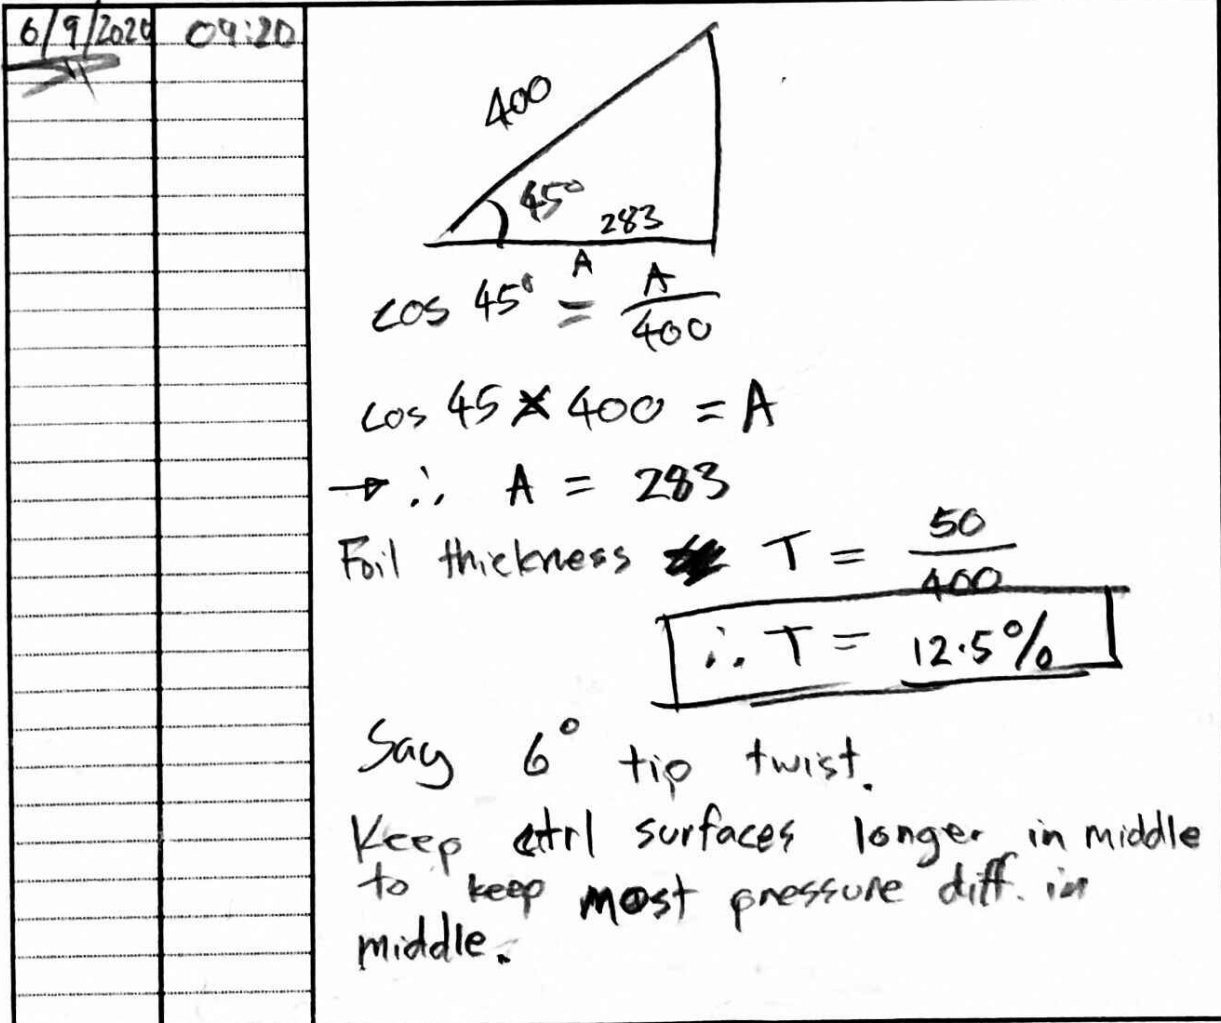 6/9/2020 09:20
400
45°
283
A
cos 45° = A/400
cos 45 × 400 = A
→ ∴ A = 283
Foil thickness T = 50/400
∴ T = 12.5%
Say 6° tip twist.
Keep ctrl surfaces longer in middle
to keep most pressure diff. in
middle.